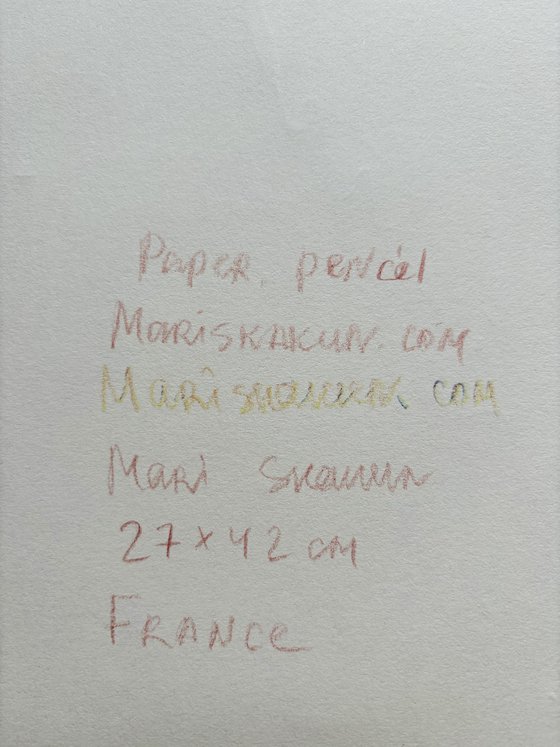 Paper. pencil
MariSKAKUN.com
Mariskakun.com
Mari Skakun
27x42 cm
FRANCE